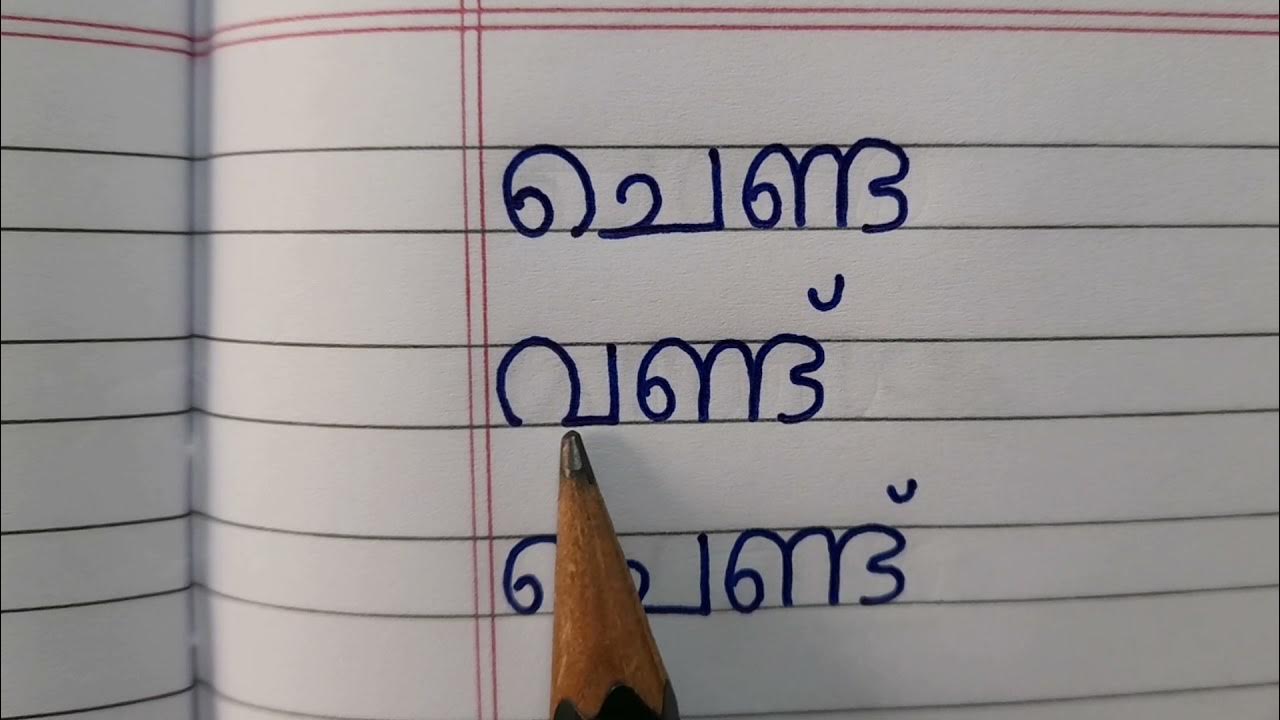 ചെണ്ട
വണ്ട്
ചെണ്ട്